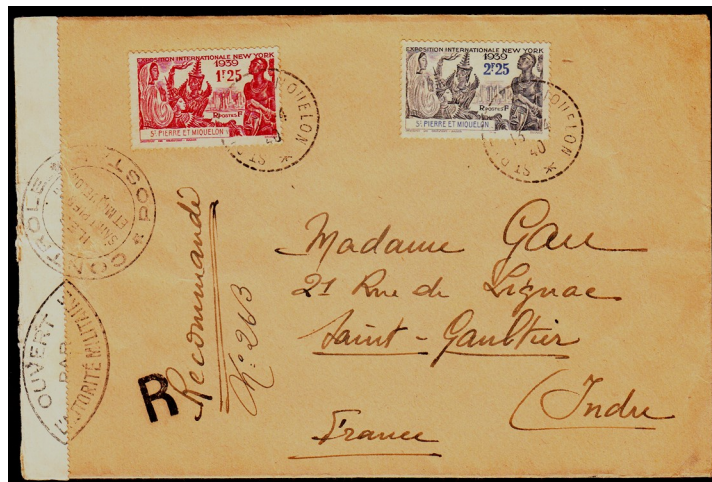 EXPOSITION INTERNATIONALE NEW YORK
1939
1F25
RF POSTES
St PIERRE ET MIQUELON
EXPOSITION INTERNATIONALE NEW YORK
1939
2F25
RF POSTES
St PIERRE ET MIQUELON
QUELON
40
* ST
QUELON
40
* ST
CONTROLE * POSTAL *
ILES
SAINT PIERRE
ET MIQUELON
OUVERT
PAR
L'AUTORITÉ MILITAIRE
R
Recommandé
No 263
Madame Gau
21 Rue de Lignac
Saint-Gaultier
(Indre
France